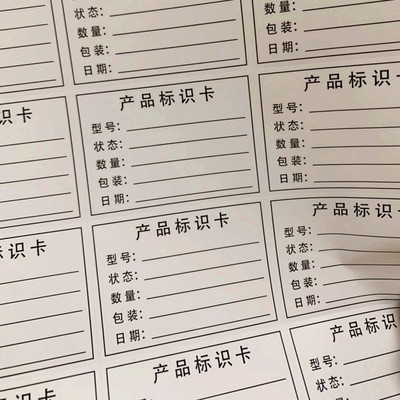 状态：
数量：
包装：
日期：
数量：
包装：
日期：
包装：
日期：
识卡
产品标识卡
型号：
状态：
数量：
包装：
日期：
产品标识卡
型号：
状态：
数量：
包装：
日期：
标识卡
产品标识卡
型号：
状态：
数量：
包装：
日期：
产品标识卡
型号：
状态：
数量：
包装：
日期：
产品标识卡
产品标识卡
型号：
状态：
数量：